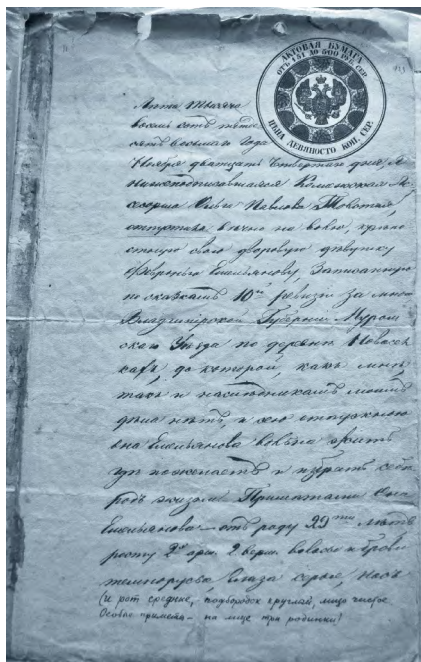 АКТОВАЯ БУМАГА
ОТЪ 151 ДО 300 РУБ. СЕР.
ЦѢНА ДЕВЯНОСТО КОП. СЕР.
Лѣта Тысяча
восемь сотъ пять
десятъ восьмаго Года
Ноября двадцать Четвертаго дня, Я
нижеподписавшаяся Коллежская Ас
сесорша Ольга Павлова
отпустила вѣчно на волю, крѣпо
стную свою дворовую дѣвушку
Февронью Емельянову, Записанную
по сказкамъ 10й ревизіи за мною
Владимірской Губерніи, Муром
скаго Уѣзда по деревни
до которой, какъ мнѣ,
такъ и наслѣдникамъ моимъ
дѣла нѣтъ, и
она Емельянова вольна жить
гдѣ пожелаетъ и избрать себѣ
родъ жизни. Примѣтами Она
Емельянова — отъ роду 29ти лѣтъ
росту 2 арш. 2 верш. волосы и брови
темнорусые, Глаза серые, носъ
(и рот средние, подбородок круглый, лицо чистое
Особые приметы — на лице три родинки)